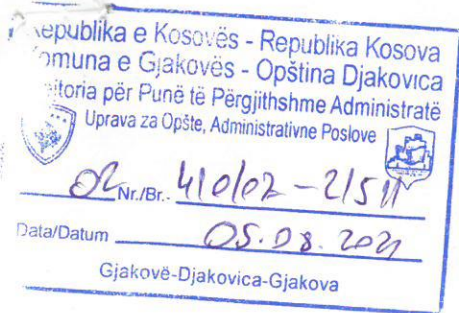 Republika e Kosovës - Republika Kosova
Komuna e Gjakovës - Opština Djakovica
itoria për Punë të Përgjithshme Administratë
Uprava za Opšte, Administrativne Poslove
02 Nr./Br.-
Data/Datum 05.08.2021
Gjakovë-Djakovica-Gjakova